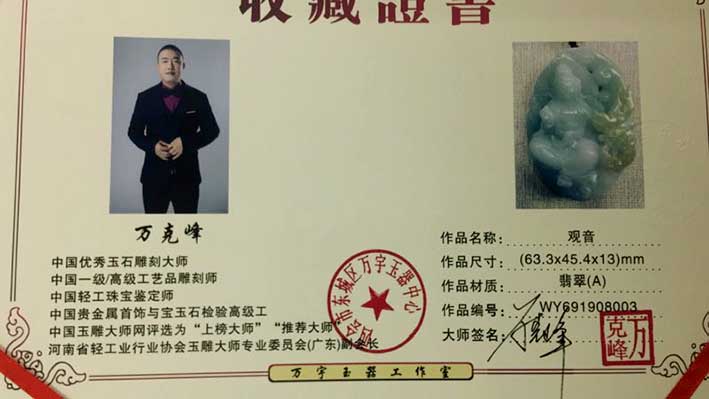 收藏證書
万克峰
中国优秀玉石雕刻大师
中国一级/高级工艺品雕刻师
中国轻工珠宝鉴定师
中国贵金属首饰与宝玉石检验高级工
中国玉雕大师网评选为“上榜大师”“推荐大师”
河南省轻工业行业协会玉雕大师专业委员会(广东)副会长
会市东城区万宇玉器中心
作品名称: 观音
作品尺寸: (63.3x45.4x13)mm
作品材质: 翡翠(A)
作品编号: WY691908003
大师签名:
万克峰
万宇玉器工作室